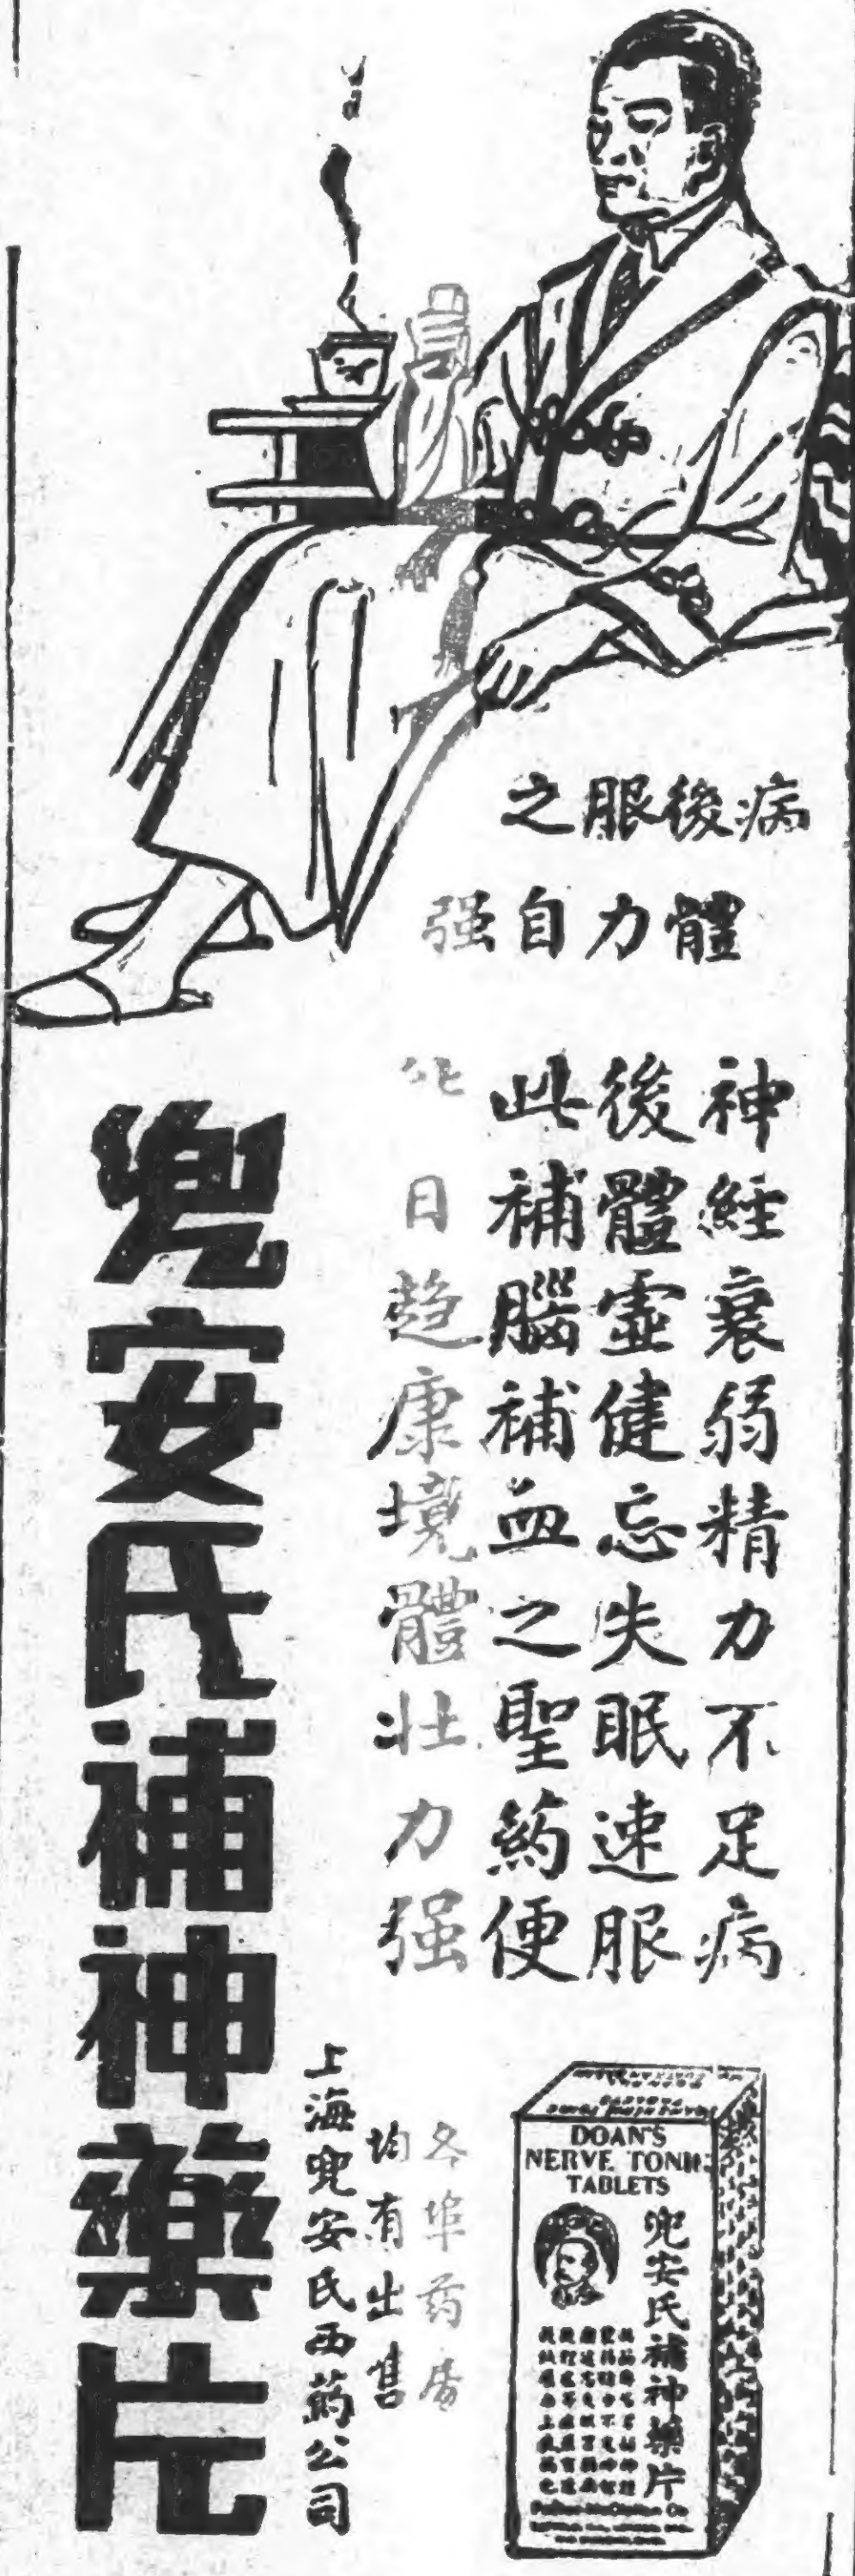 病後服之
體力自强
神經衰弱精力不足病
後體虛健忘失眠速服
此補腦補血之聖药便
能日趋康境體壯力强
兜安氏補神藥片
各埠药房
均有出售
上海兜安氏西药公司
DOAN'S
NERVE TONIC
TABLETS
兜安氏補神藥片